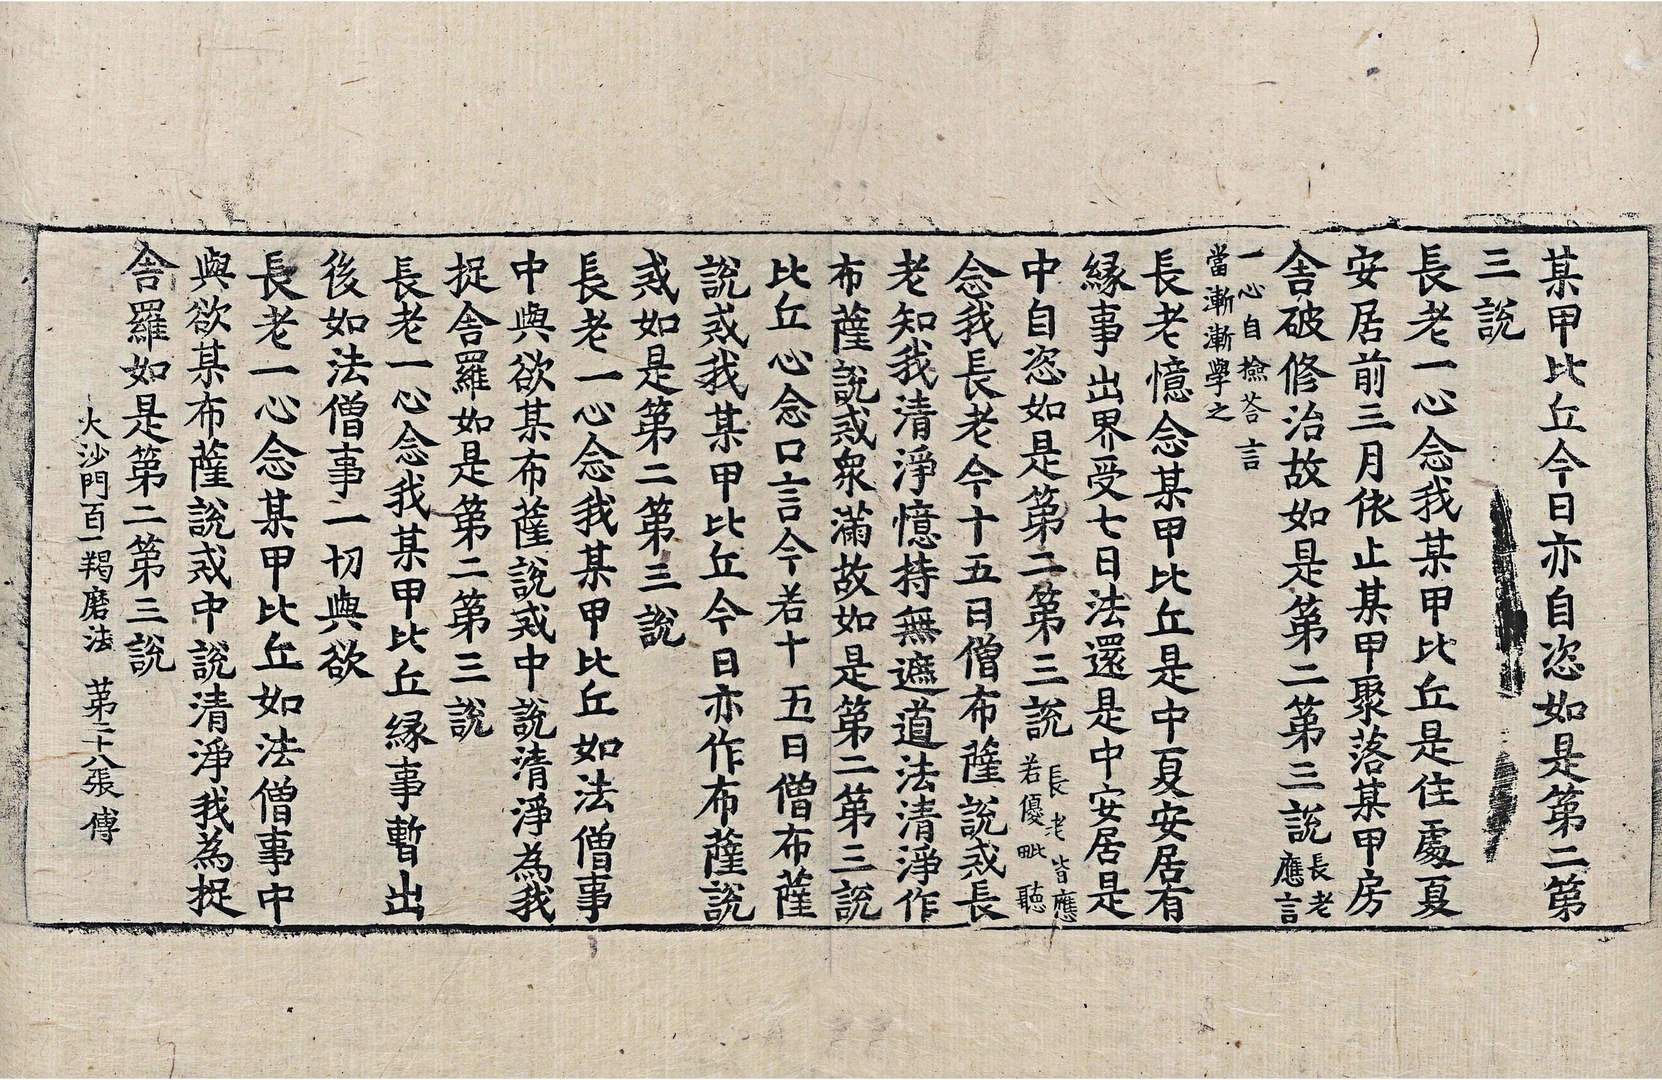 某甲比丘今日亦自恣如是第二第
三說
長老一心念我某甲比丘是住處夏
安居前三月依止某甲聚落某甲房
舎破修治故如是第二第三說長老
應言
一心自撿荅言
當漸漸學之
長老憶念某甲比丘是中夏安居有
緣事出界受七日法還是中安居是
中自恣如是第二第三說長老皆應
若優毗聽
念我長老今十五日僧布薩說戒長
老知我清淨憶持無遮道法清淨作
布薩說戒衆滿故如是第二第三說
比丘心念口言今若十五日僧布薩
說戒我某甲比丘今日亦作布薩說
戒如是第二第三說
長老一心念我某甲比丘如法僧事
中與欲某布薩說戒中說清淨為我
捉舎羅如是第二第三說
長老一心念我某甲比丘緣事暫出
後如法僧事一切與欲
長老一心念某甲比丘如法僧事中
與欲某布薩說戒中說清淨我為捉
舎羅如是第二第三說
大沙門百一羯磨法 第二十八張 傅